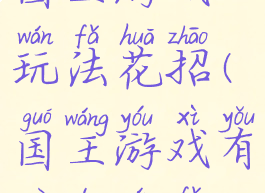 wán fǎ huā zhāo
玩法花招(
guó wáng yóu xì yǒu
国王游戏有